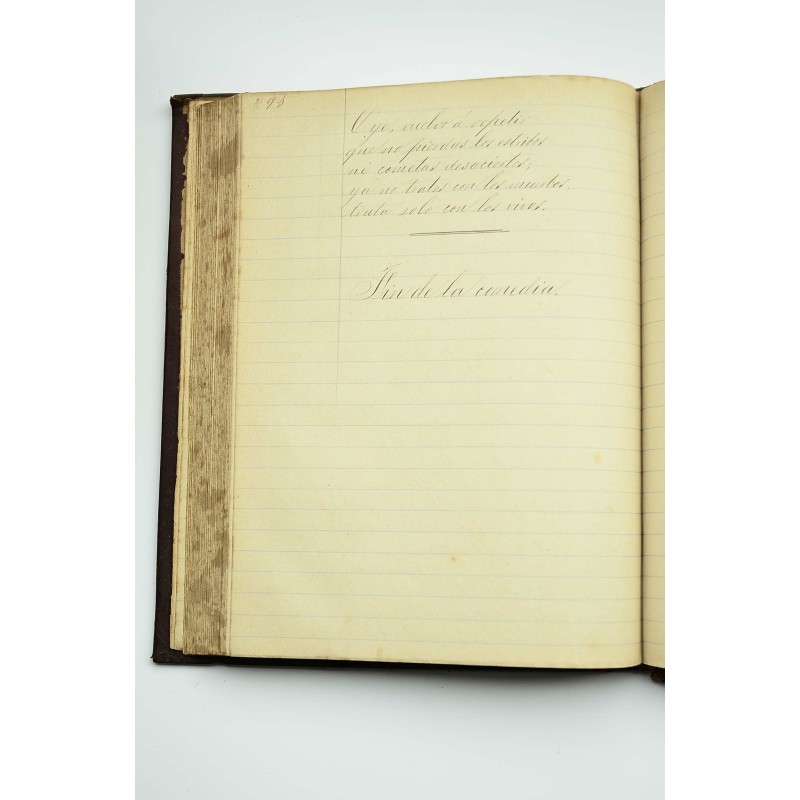 298
Oye, vuelvo á repetir
que no pierdas los estribos
ni cometas desaciertos;
ya no trates con los muertos,
trata solo con los vivos.
Fin de la comedia.